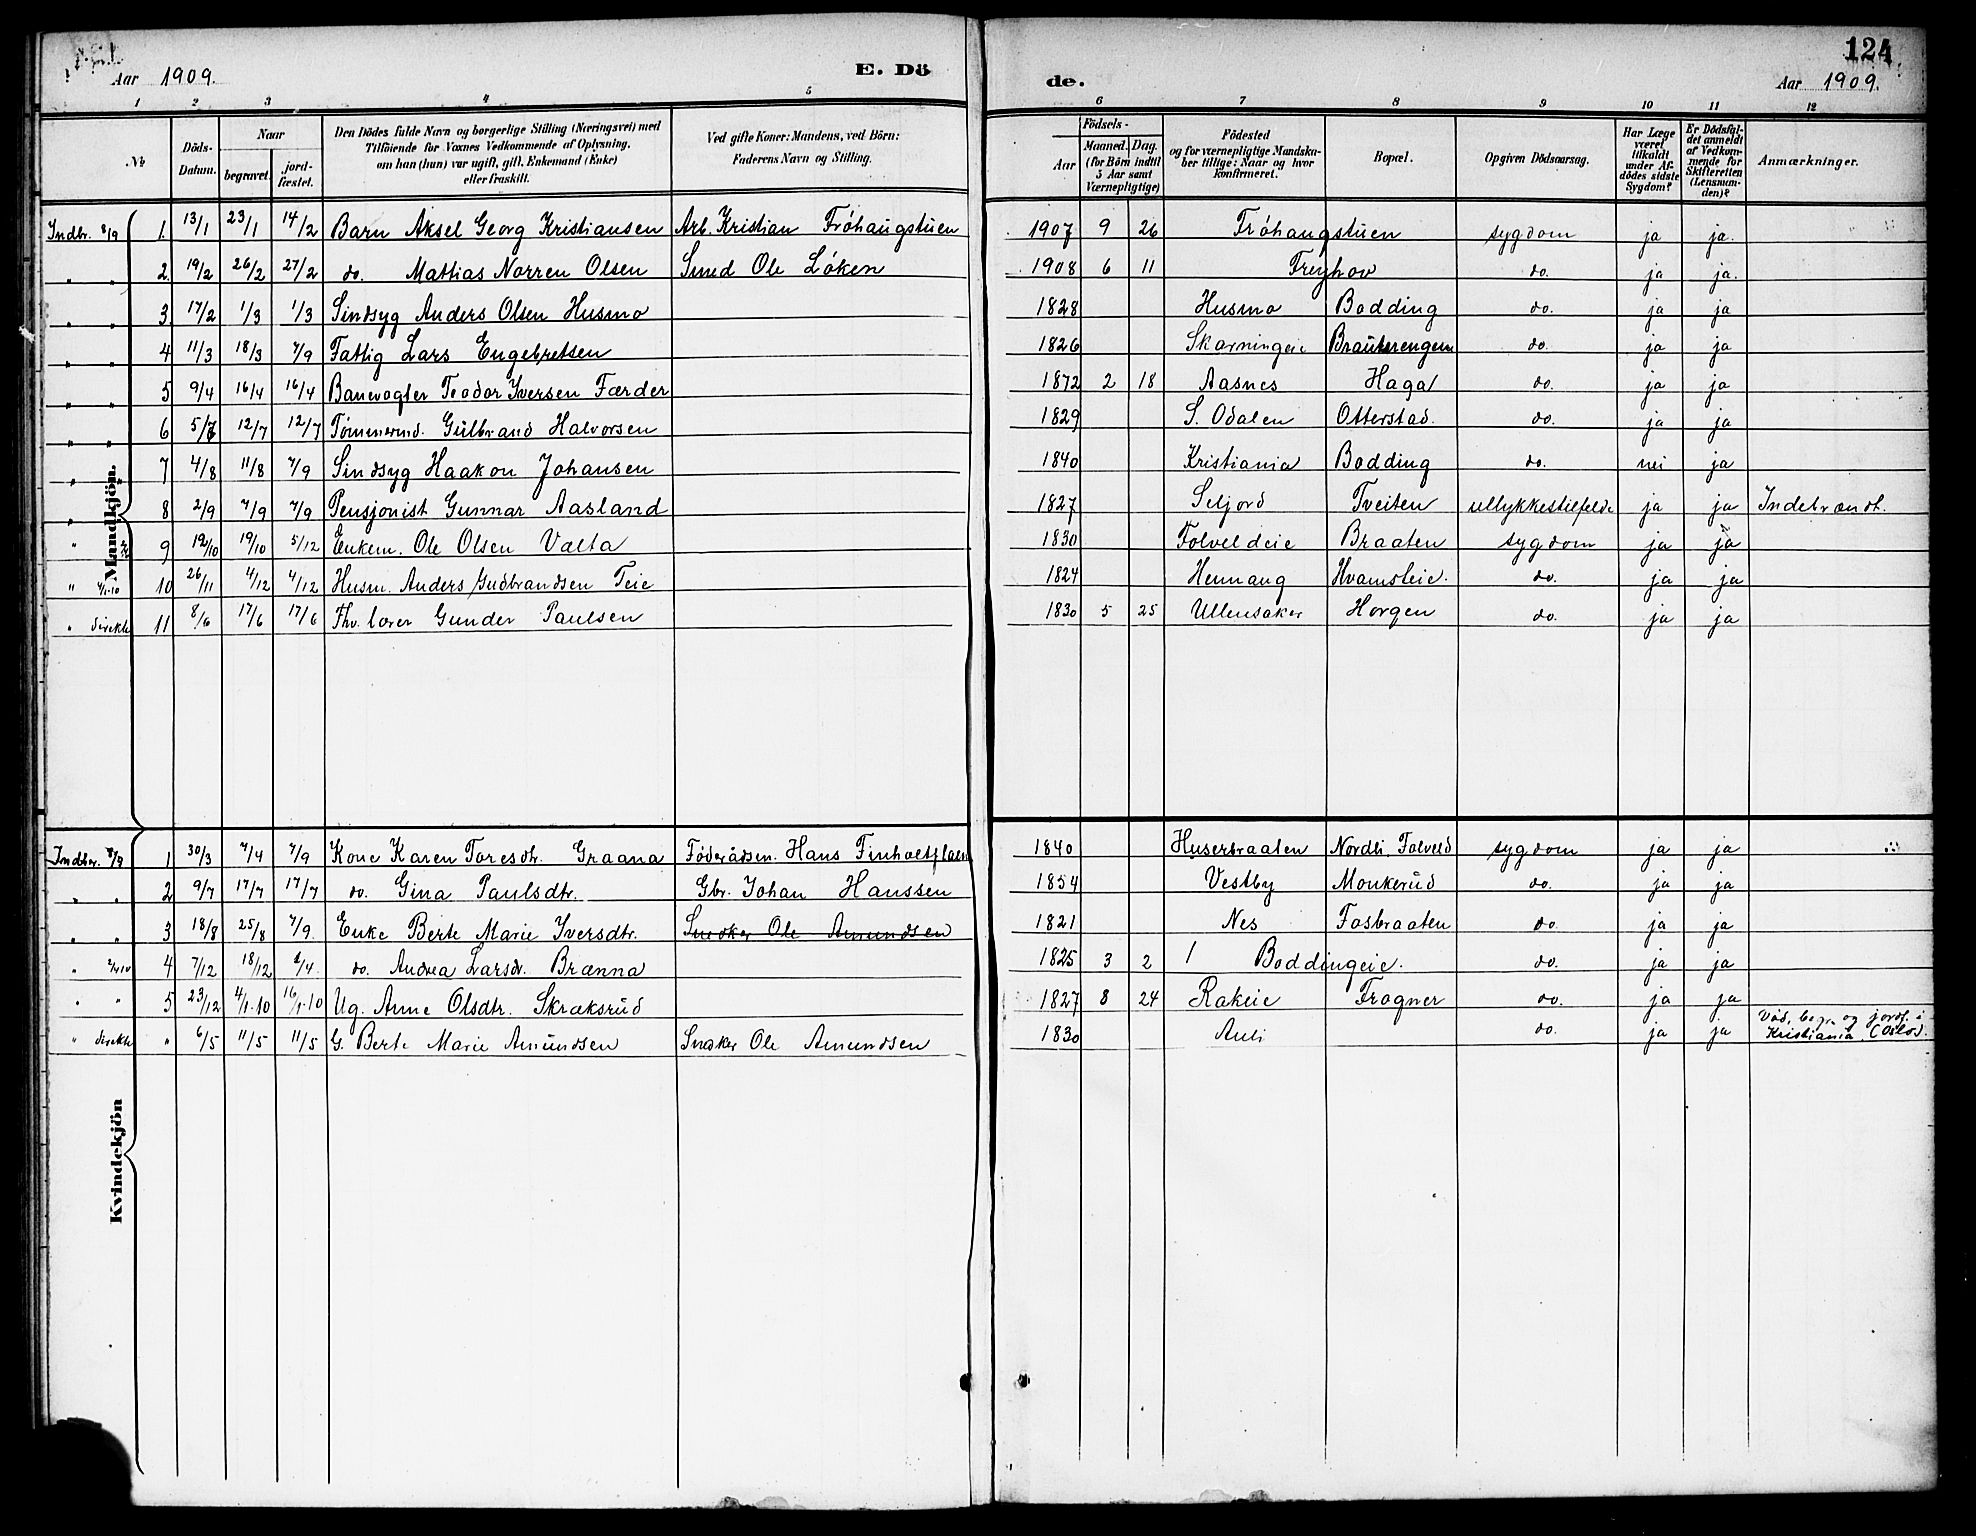 Aar 1909.
E. Dö
1 2 3 4 5
№
Döds-Datum.
Naar
begravet.
jord-fæstet.
Den Dödes fulde Navn og borgerlige Stilling (Næringsvei) med
Tilföiende for Voxnes Vedkommende af Oplysning,
om han (hun) var ugift, gift, Enkemand (Enke)
eller fraskilt.
Ved gifte Koner: Mandens, ved Börn:
Faderens Navn og Stilling.
Mandkjön.
Indbr. 8/9 1. 13/1 23/1 14/2 Barn Aksel Georg Kristiansen Arb. Kristian Fröhaugstuen
" " 2. 19/2 26/2 27/2 do. Mattias Norren Olsen Smed Ole Löken
" " 3. 17/2 1/3 1/3 Sindsyg Anders Olsen Husmo
" " 4 11/3 18/3 7/9 Fattig Lars Engebretsen
" " 5 9/4 16/4 16/4 Banevogter Teodor Iversen Færder
" " 6 5/7 12/7 12/7 Tömmermd. Gulbrand Halvorsen
" " 7 4/8 11/8 7/9 Sindsyg Haakon Johansen
" 8 2/9 7/9 7/9 Pensjonist Gunnar Aasland
" 9 12/10 19/10 5/12 Enkem. Ole Olsen Valta
" 4/1-10 10 26/11 4/12 4/12 Husm. Anders Gudbrandsen Teie
" direkte 11 8/6 17/6 17/6 Fhv. lærer Gunder Paulsen
Kvindekjön
Indber. 8/9 1 30/3 7/4 7/9 Kone Karen Toresdtr. Graana Föderådsm. Hans Finholtplads
" " 2 9/7 17/7 17/7 do. Gina Paulsdtr. Gbr. Johan Hanssen
" " 3 18/8 25/8 7/9. Enke Berte Marie Iversdtr. Snedker Ole Amundsen
" 4 7/12 18/12 do. Andrea Larsdr. Brænna
" " 5 23/12 4/1-10 16/1-10 Ug. Anne Olsdtr. Skraksrud
" direkte " 6/5 11/5 11/5 G. Berte Marie Amundsen Snedker Ole Amundsen
124
de.
Aar 1909.
6 7 8 9 10 11 12
Födsels-
Aar
Maaned. Dag.
(for Börn indtil
5 Aar samt
Værnepligtige)
Födested
og for værnepligtige Mandska-
ber tillige: Naar og hvor
konfirmeret.
Bopæl.
Opgiven Dödsaarsag.
Har Læge
været
tilkaldt
under Af-
dödes sidste
Sygdom?
Er Dödsfal-
det anmeldt
af Vedkom-
mende for
Skifteretten
(Lensman-
den)?
Anmærkninger.
1907 9 26 Fröhaugstuen sygdom ja ja.
1908 6 11 Freyhov do. ja ja.
1828 Husmo Bodding do. ja ja
1826 Skarningeie Brauterengen do. ja ja
1872 2 18 Aasnes Haga do. ja ja
1829 S. Odalen Otterstad. do. ja ja
1840 Kristiania Bodding do. nei ja
1827 Seljord Tveiten ullykkestilfelde ja ja Indebrændt.
1830 Folveldeie Braaten sygdom ja ja
1824 Hennaug Hvamsleie. do. ja ja
1830 5 25 Ullensaker Horgen do. ja ja
1840 Huserbraaten Nordli, Folveld sygdom ja ja
1854 Vestby Monkerud do. ja ja
1821 Nes Fosbraaten do. ja ja
1825 3 2 Boddingeie. do. ja ja
1827 8 24 Rakeie Frogner do. ja ja
1830 Auli do. ja ja Död, begr. og jordf. i
Kristiania (Oslo).